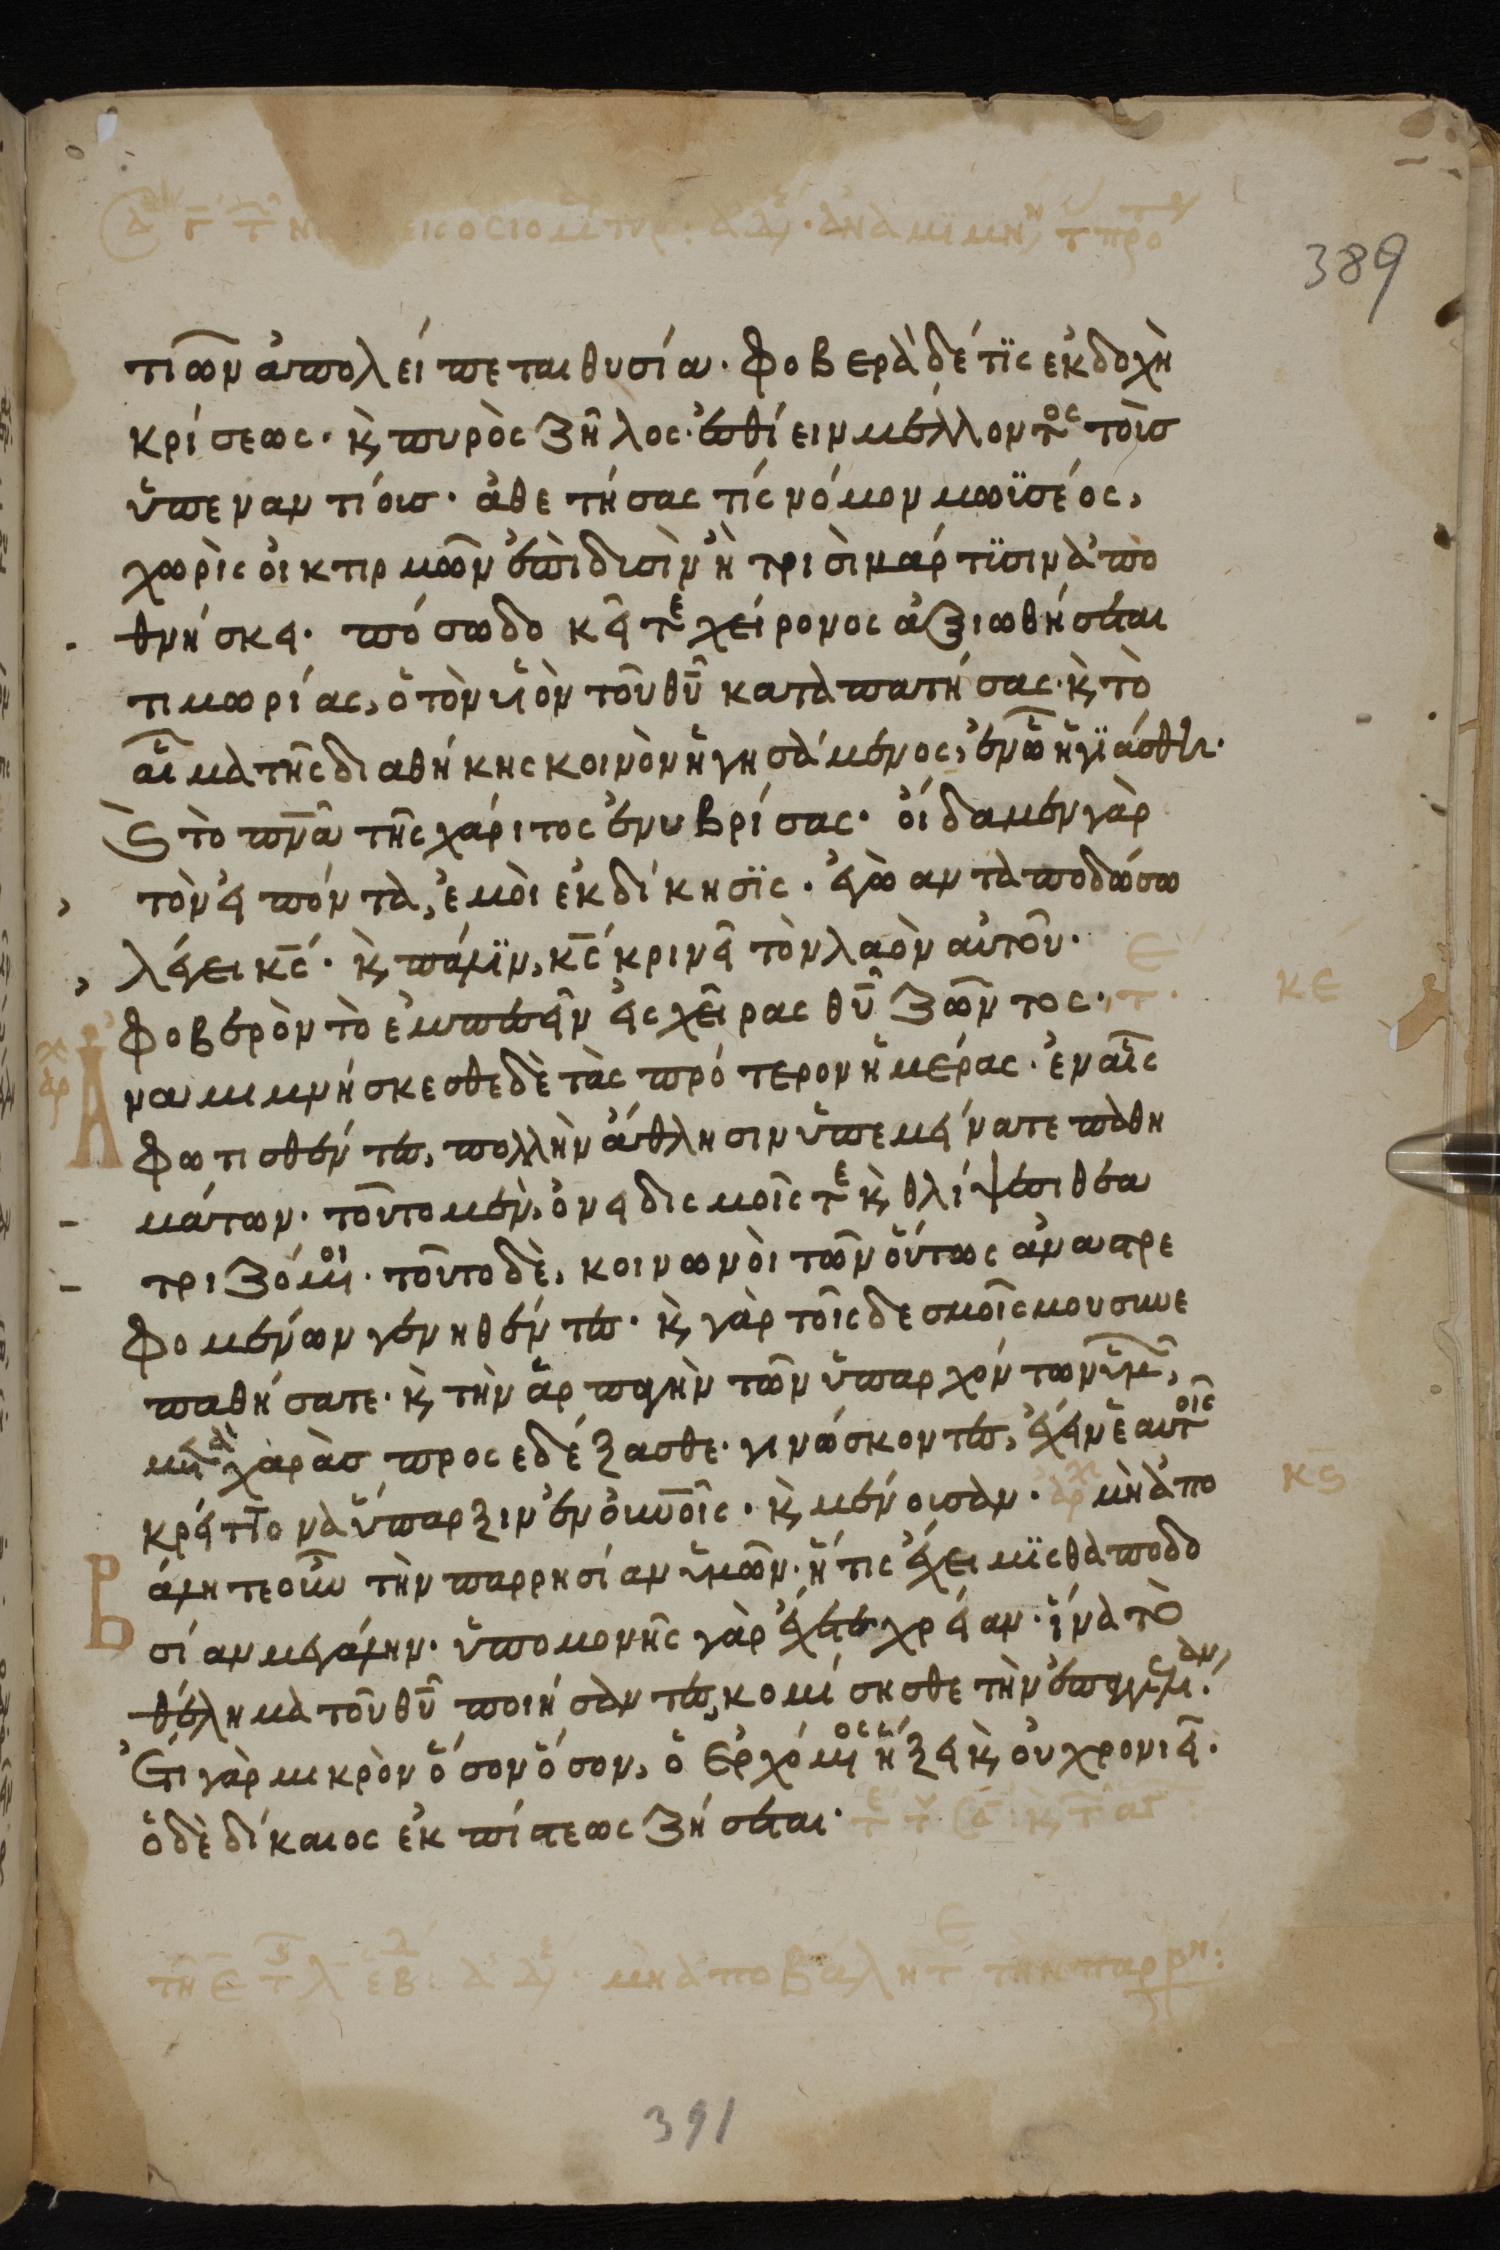 389
τιῶν ἀπολείπεται θυσία· φοβερὰ δέ τϊς ἐκδοχὴ
κρίσεως· κ, πυρὸς ζῆλος· ἐσθίειν μέλλοντος τοὺσ
ὑπεναντίουσ· ἀθετήσας τίς νόμον μωϋσέος,
χωρὶς οἰκτιρμῶν ἐπὶ δυσὶν ἢ τρισὶ μάρτϋσιν ἀπο
θνήσκει· πόσω δοκεῖτε χείρονος ἀξιωθήσεται
τιμωρίας, ὁ τὸν υἱὸν τοῦ θῦ καταπατήσας· κ, τὸ
αἷμα τῆς διαθήκης κοινὸν ἡγησάμενος, ἐν ὧ ἡγϊάσθη·
κ, τὸ πνᾶ τῆς χάριτος ἐνυβρίσας· οἴδαμεν γὰρ
τὸν εἰπόντα, ἐμοὶ ἐκδίκησϊς· ἐγὼ ανταποδώσω
λέγει κς· κ, πάλϊν, κς κρινεῖ τὸν λαὸν αὐτοῦ·
φοβερὸν τὸ ἐμπεσεῖν εἰς χεῖρας θῦ ζῶντος· κε
Ἀναμιμνήσκεσθε δὲ τὰς πρότερον ἡμέρας· ἐν αἷς
φωτισθέντες, πολλὴν ἄθλησιν ὑπεμείνατε παθη
μάτων· τοῦτο μὲν, ὀνειδισμοῖς τε κ, θλίψεσι θεα
τριζόμενοι· τοῦτο δὲ, κοινωνοὶ τῶν οὕτως ἀναστρε
φομένων γενηθέντες· κ, γὰρ τοῖς δεσμοῖς μου συνε
παθήσατε· κ, τὴν ἁρπαγὴν τῶν ὑπαρχόντων ὑμῶν,
μετὰ χαρᾶσ προσεδέξασθε· γινώσκοντες, ἔχειν ἑαυτοῖς
κρείττονα ὕπαρξιν ἐν οὐνοῖς· κ, μένουσαν· ἀρχ μὴ ἀπο κς
βάλητε οὖν τὴν παρρησίαν ὑμῶν· ἥτις ἔχει μϊσθαποδο
σίαν μεγάλην· ὑπομονῆς γὰρ ἔχετε χρείαν· ἵνα τὸ
θέλημα τοῦ θῦ ποιήσαντες, κομίσησθε τὴν ἐπαγγελίαν·
Ἔτι γὰρ μικρὸν ὅσον ὅσον, ὁ ἐρχόμενος ἥξει κ, οὐ χρονιεῖ·
ὁ δὲ δίκαιος ἐκ πίστεως ζήσεται·
μὴ ἀποβάλητ τὴν παρρη:
391